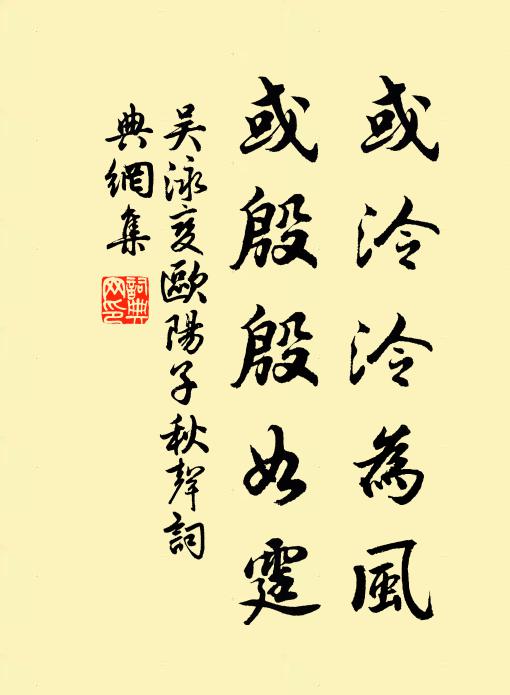 或泠泠為風
或殷殷如霆
吳泳变歐陽子秋聲詞
典網集
詞典網印